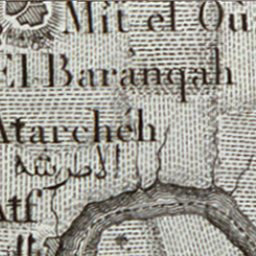 Mit el Oû
El Barânqah
Atarchéh
الاطرشه
Atf